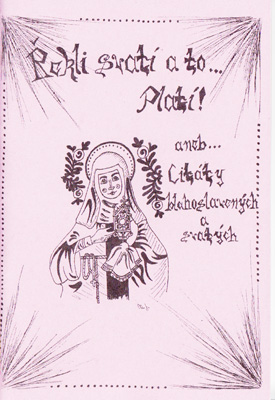 Řekli svatí a to...
Platí!
aneb...
Citáty
blahoslavených
a
svatých